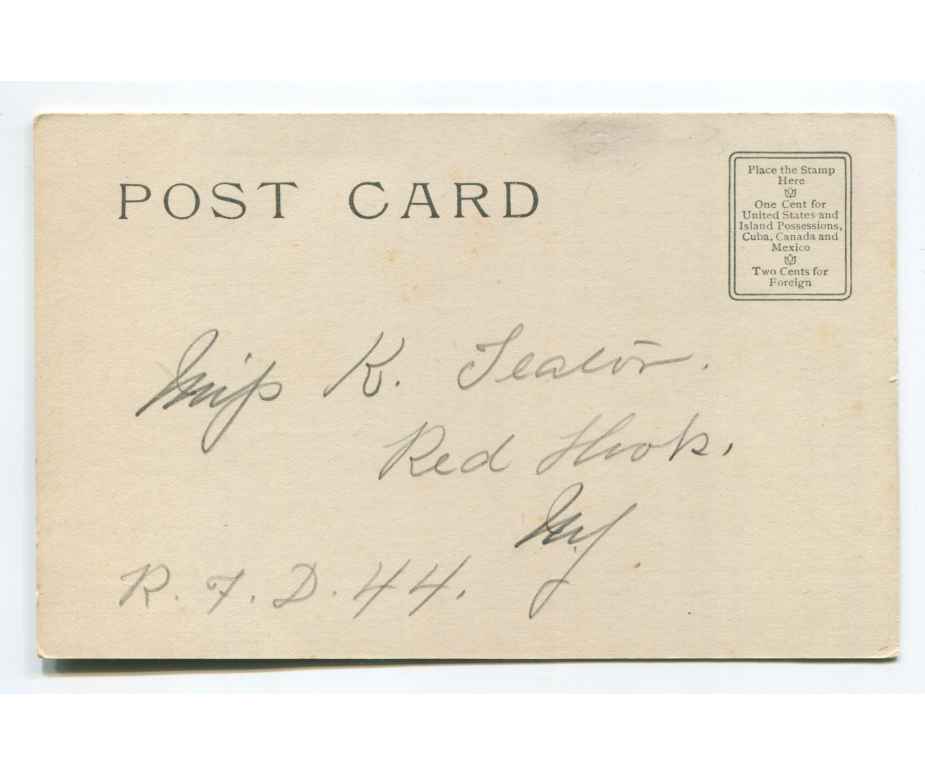 POST CARD
Place the Stamp
Here
One Cent for
United States and
Island Possessions,
Cuba, Canada and
Mexico
Two Cents for
Foreign
Miss K. Teator.
Red Hook.
N.Y.
R. F. D. 44.